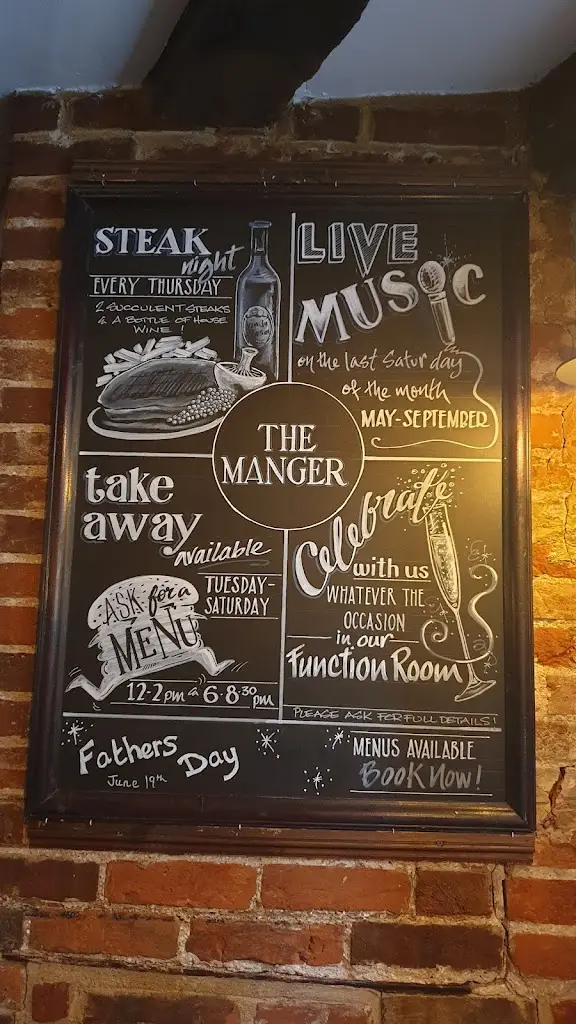 STEAK
night
EVERY THURSDAY
2 SUCCULENT STEAKS
& A BOTTLE OF HOUSE
WINE!
LIVE
MUSIC
on the last Saturday
of the month
MAY-SEPTEMBER
THE
MANGER
take
away
available
TUESDAY-
SATURDAY
ASK for a
MENU
12-2pm & 6-8.30pm
Celebrate
with us
WHATEVER THE
OCCASION
in our
Function Room
PLEASE ASK FOR FULL DETAILS!
Fathers
Day
June 19th
MENUS AVAILABLE
Book Now!